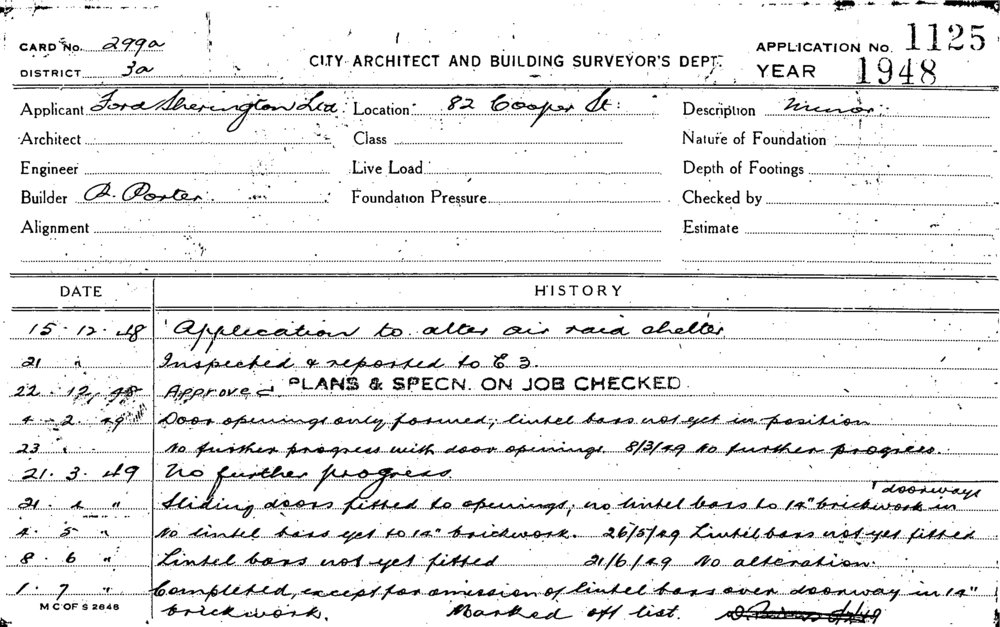 CARD No. 299a
DISTRICT 3a
CITY ARCHITECT AND BUILDING SURVEYOR'S DEPT.
APPLICATION No. 1125
YEAR 1948
Applicant Ford Sherington Ltd. Location 82 Cooper St: Description Minor.
Architect Class Nature of Foundation
Engineer Live Load Depth of Footings
Builder R. Porter. Foundation Pressure Checked by
Alignment Estimate
DATE HISTORY
15.12.48 Application to alter air raid shelter
21 " Inspected & reported to E 3.
22.12.48 Approved PLANS & SPECN. ON JOB CHECKED
4.2.49 Door openings only formed; lintel bars not yet in position
23 " No further progress with door openings. 8/3/49 No further progress.
21.3.49 No further progress.
21.4 " Sliding doors fitted to openings, no lintel bars to 14" brickwork in doorways
4.5 " No lintel bars yet to 14" brickwork. 26/5/49 Lintel bars not yet fitted
8.6 " Lintel bars not yet fitted 21/6/49 No alteration.
1.7 " Completed, except for omission of lintel bars over doorway in 14"
brickwork. Marked off list.
M C OF S 2646